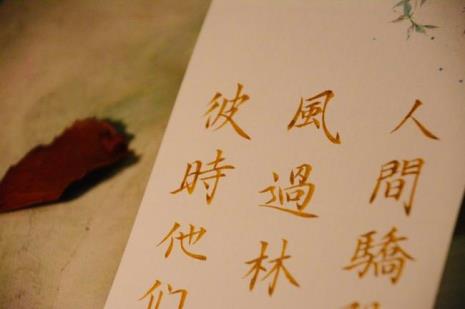 人間驕
風過林
彼時他们